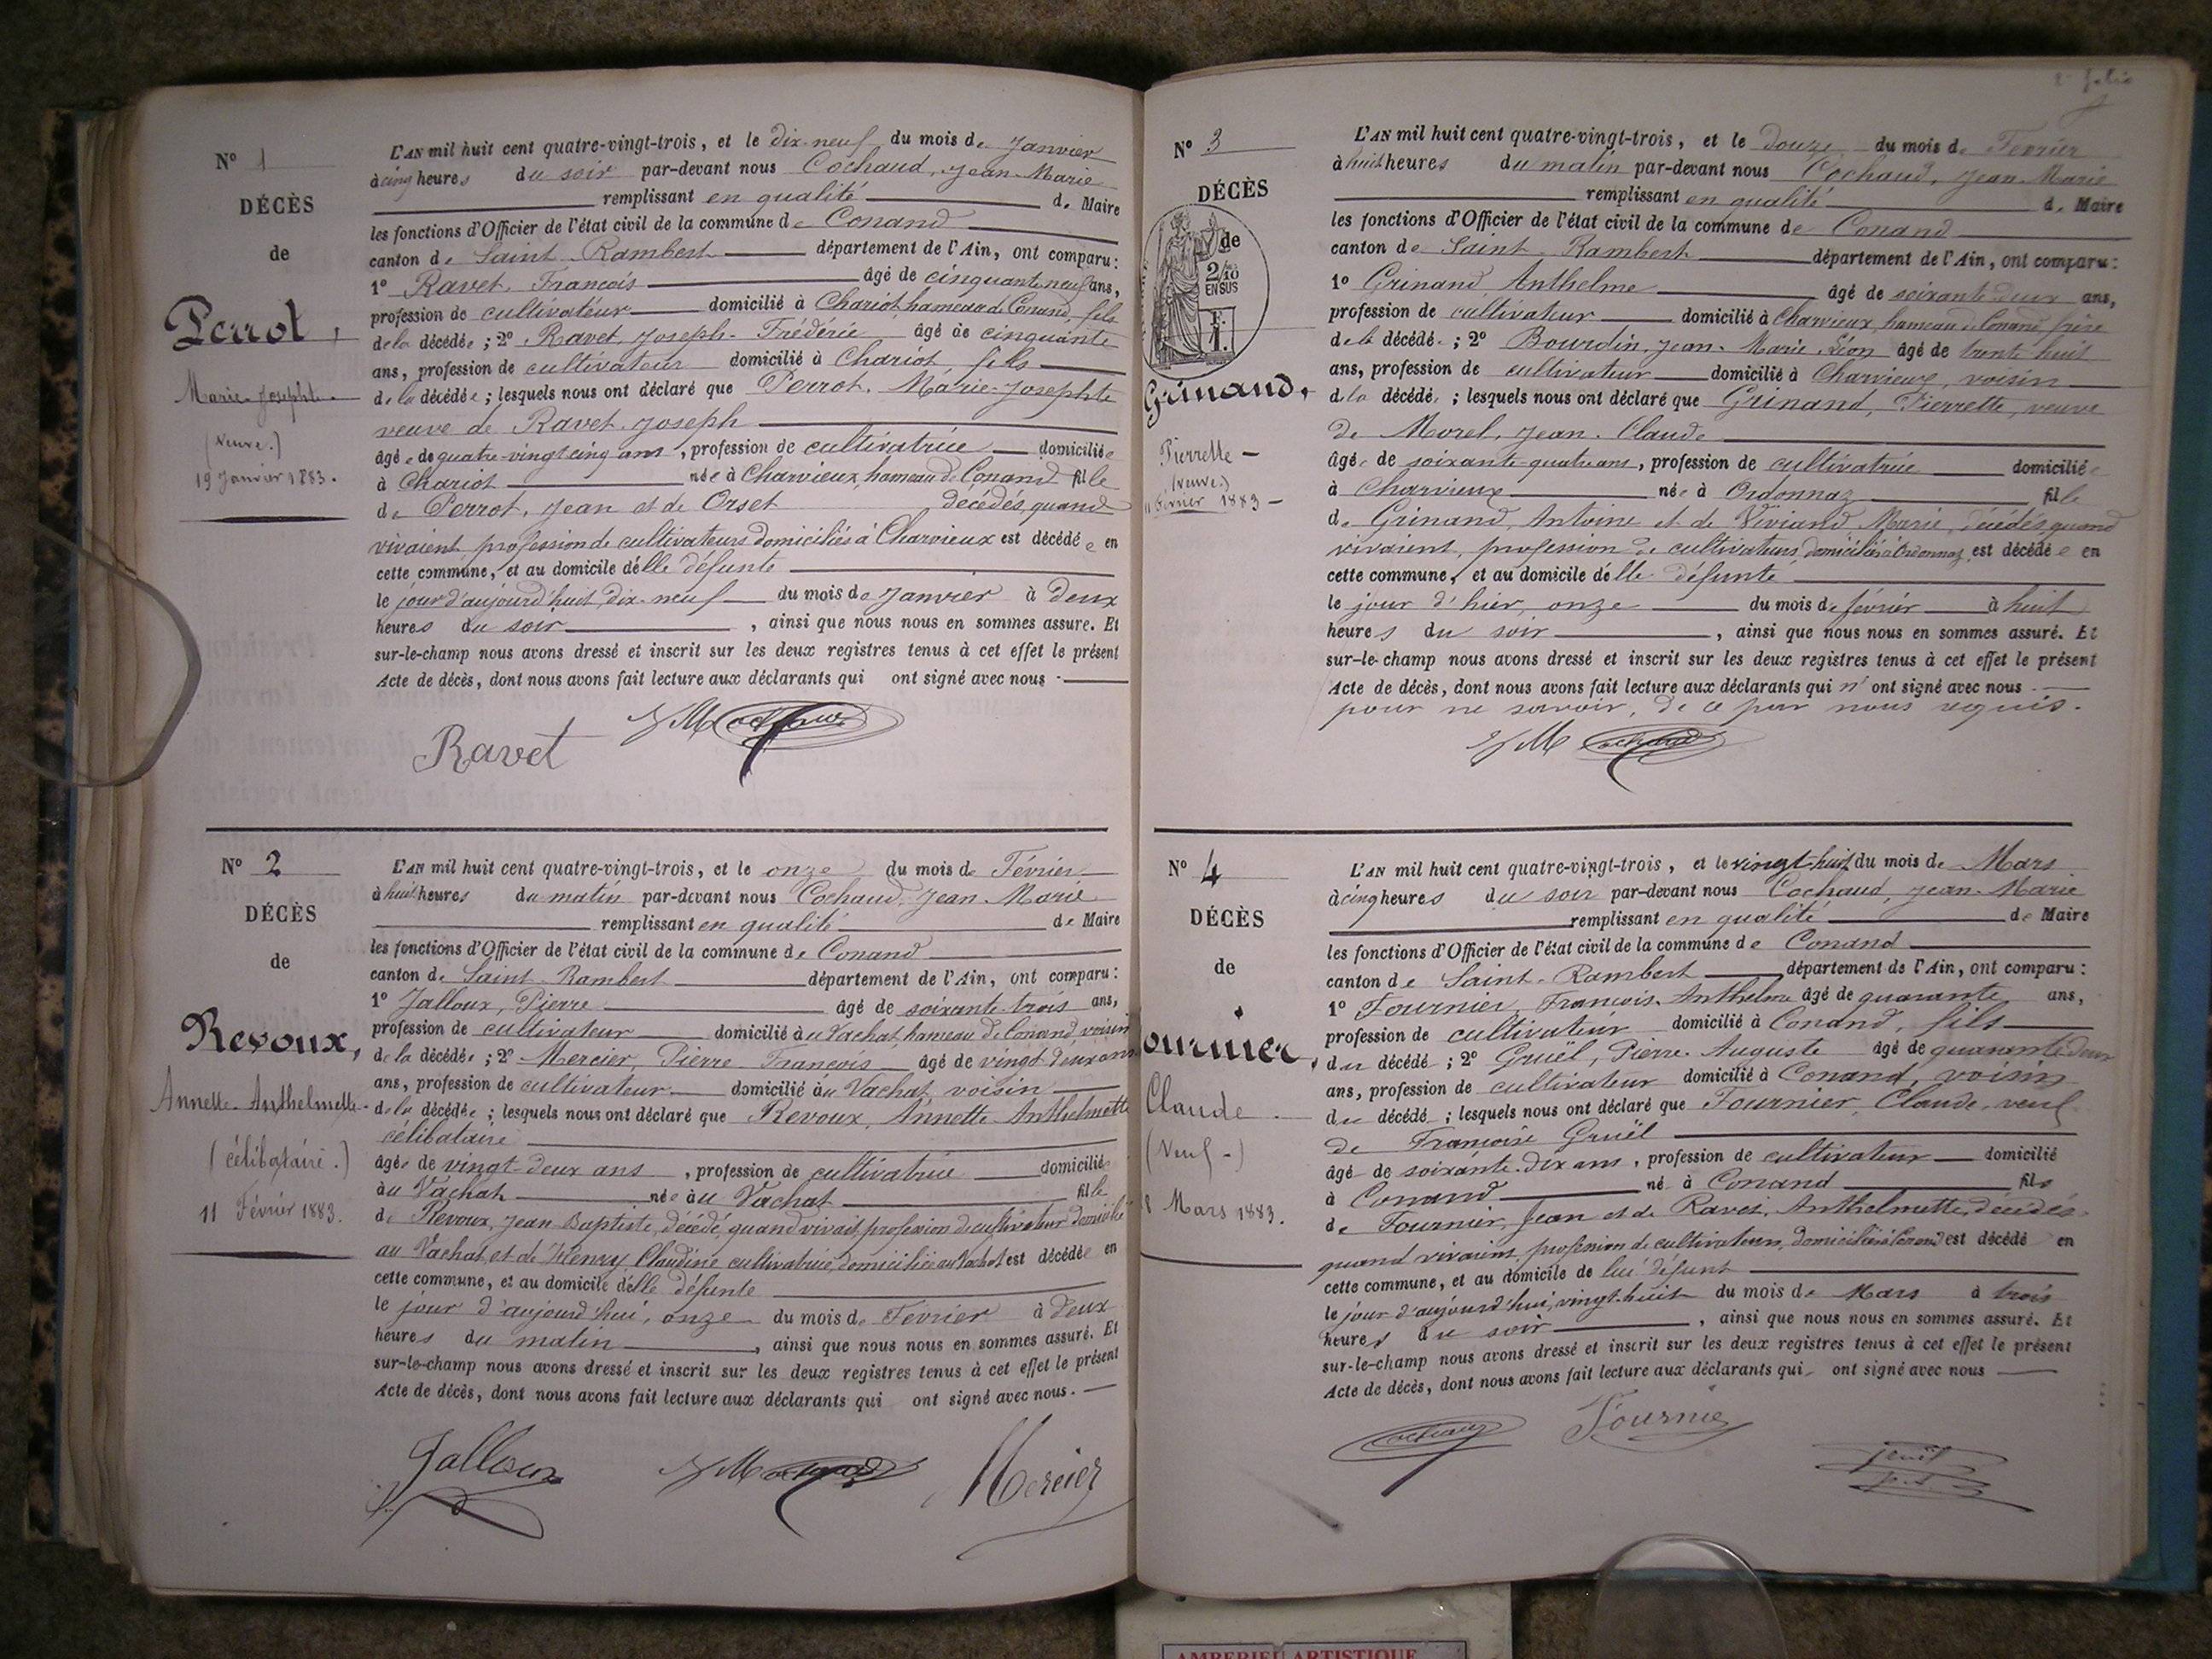 N° 1
DÉCÈS
de
Perrot,
Marie-Josephte
(veuve.)
19 Janvier 1883.
L'AN mil huit cent quatre-vingt-trois, et le dix-neuf du mois de Janvier
à cinq heures du soir par-devant nous Cochaud, Jean-Marie
remplissant en qualité de Maire
les fonctions d'Officier de l'état civil de la commune de Conand
canton de Saint-Rambert département de l'Ain, ont comparu :
1° Ravet, François âgé de cinquante neuf ans,
profession de cultivateur domicilié à Chariot hameau de Conand, fils
de la décédée ; 2° Ravet, Joseph-Frédéric âgé de cinquante
ans, profession de cultivateur domicilié à Chariot fils
de la décédée ; lesquels nous ont déclaré que Perrot, Marie-Josephte
veuve de Ravet Joseph
âgée de quatre-vingt cinq ans, profession de cultivatrice domiciliée
à Chariot née à Charvieux, hameau de Conand fille
de Perrot, Jean et de Orset décédés, quand
vivaient profession de cultivateurs domiciliés à Charvieux est décédée en
cette commune, et au domicile d'elle défunte
le jour d'aujourd'hui, dix-neuf du mois de Janvier à deux
heures du soir, ainsi que nous nous en sommes assuré. Et
sur-le-champ nous avons dressé et inscrit sur les deux registres tenus à cet effet le présent
Acte de décès, dont nous avons fait lecture aux déclarants qui ont signé avec nous.
Ravet JM Cochaud
N° 2
DÉCÈS
de
Revoux,
Annette-Anthelmette
(célibataire.)
11 Février 1883.
L'AN mil huit cent quatre-vingt-trois, et le onze du mois de Février
à huit heures du matin par-devant nous Cochaud, Jean-Marie
remplissant en qualité de Maire
les fonctions d'Officier de l'état civil de la commune de Conand
canton de Saint-Rambert département de l'Ain, ont comparu :
1° Jalloux, Pierre âgé de soixante-trois ans,
profession de cultivateur domicilié au Vachat, hameau de Conand, voisin
de la décédée ; 2° Mercier, Pierre François âgé de vingt-deux ans
ans, profession de cultivateur domicilié au Vachat, voisin
de la décédée ; lesquels nous ont déclaré que Revoux, Annette Anthelmette
célibataire
âgée de vingt-deux ans, profession de cultivatrice domiciliée
au Vachat née au Vachat fille
de Revoux, Jean Baptiste, décédé, quand vivait, profession de cultivateur domicilié
au Vachat, et de Henry, Claudine cultivatrice, domiciliée au Vachat est décédée en
cette commune, et au domicile d'elle défunte
le jour d'aujourd'hui, onze du mois de Février à deux
heures du matin, ainsi que nous nous en sommes assuré. Et
sur-le-champ nous avons dressé et inscrit sur les deux registres tenus à cet effet le présent
Acte de décès, dont nous avons fait lecture aux déclarants qui ont signé avec nous.
Jalloux JM Cochaud Mercier
2e folio
N° 3
DÉCÈS
de
2/10
EN SUS
Grinand,
Pierrette
(veuve.)
11 février 1883
L'AN mil huit cent quatre-vingt-trois, et le douze du mois de Février
à huit heures du matin par-devant nous Cochaud, Jean-Marie
remplissant en qualité de Maire
les fonctions d'Officier de l'état civil de la commune de Conand
canton de Saint-Rambert département de l'Ain, ont comparu :
1° Grinand, Anthelme âgé de soixante-deux ans,
profession de cultivateur domicilié à Charvieux hameau de Conand, frère
de la décédée ; 2° Bourdin, Jean-Marie-Léon âgé de trente huit
ans, profession de cultivateur domicilié à Charvieux, voisin
de la décédée ; lesquels nous ont déclaré que Grinand, Pierrette, veuve
de Morel, Jean-Claude
âgée de soixante-quatre ans, profession de cultivatrice domiciliée
à Charvieux née à Ordonnaz fille
de Grinand, Antoine et de Viviand, Marie, décédés, quand
vivaient, profession de cultivateurs, domiciliés à Ordonnaz est décédée en
cette commune, et au domicile d'elle défunte
le jour d'hier, onze du mois de février à huit
heures du soir, ainsi que nous nous en sommes assuré. Et
sur-le-champ nous avons dressé et inscrit sur les deux registres tenus à cet effet le présent
Acte de décès, dont nous avons fait lecture aux déclarants qui n'ont signé avec nous
pour ne savoir, de ce par nous requis.
JM Cochaud
N° 4
DÉCÈS
de
ournier,
Claude
(Veuf.)
8 Mars 1883.
L'AN mil huit cent quatre-vingt-trois, et le vingt-huit du mois de Mars
à cinq heures du soir par-devant nous Cochaud, Jean-Marie
remplissant en qualité de Maire
les fonctions d'Officier de l'état civil de la commune de Conand
canton de Saint-Rambert département de l'Ain, ont comparu :
1° Fournier, François-Anthelme âgé de quarante ans,
profession de cultivateur domicilié à Conand, fils
du décédé ; 2° Gruël, Pierre-Auguste âgé de quarante deux
ans, profession de cultivateur domicilié à Conand, voisin
du décédé ; lesquels nous ont déclaré que Fournier, Claude, veuf
de Françoise Gruël
âgé de soixante-dix ans, profession de cultivateur domicilié
à Conand né à Conand fils
de Fournier, Jean et de Ravet, Anthelmette, décédés
quand vivaient, profession de cultivateurs, domiciliés à Conand est décédé en
cette commune, et au domicile de lui défunt
le jour d'aujourd'hui, vingt-huit du mois de Mars à trois
heures du soir, ainsi que nous nous en sommes assuré. Et
sur-le-champ nous avons dressé et inscrit sur les deux registres tenus à cet effet le présent
Acte de décès, dont nous avons fait lecture aux déclarants qui ont signé avec nous
Cochaud Fournier Gruël
AMBERIEU ARTISTIQUE